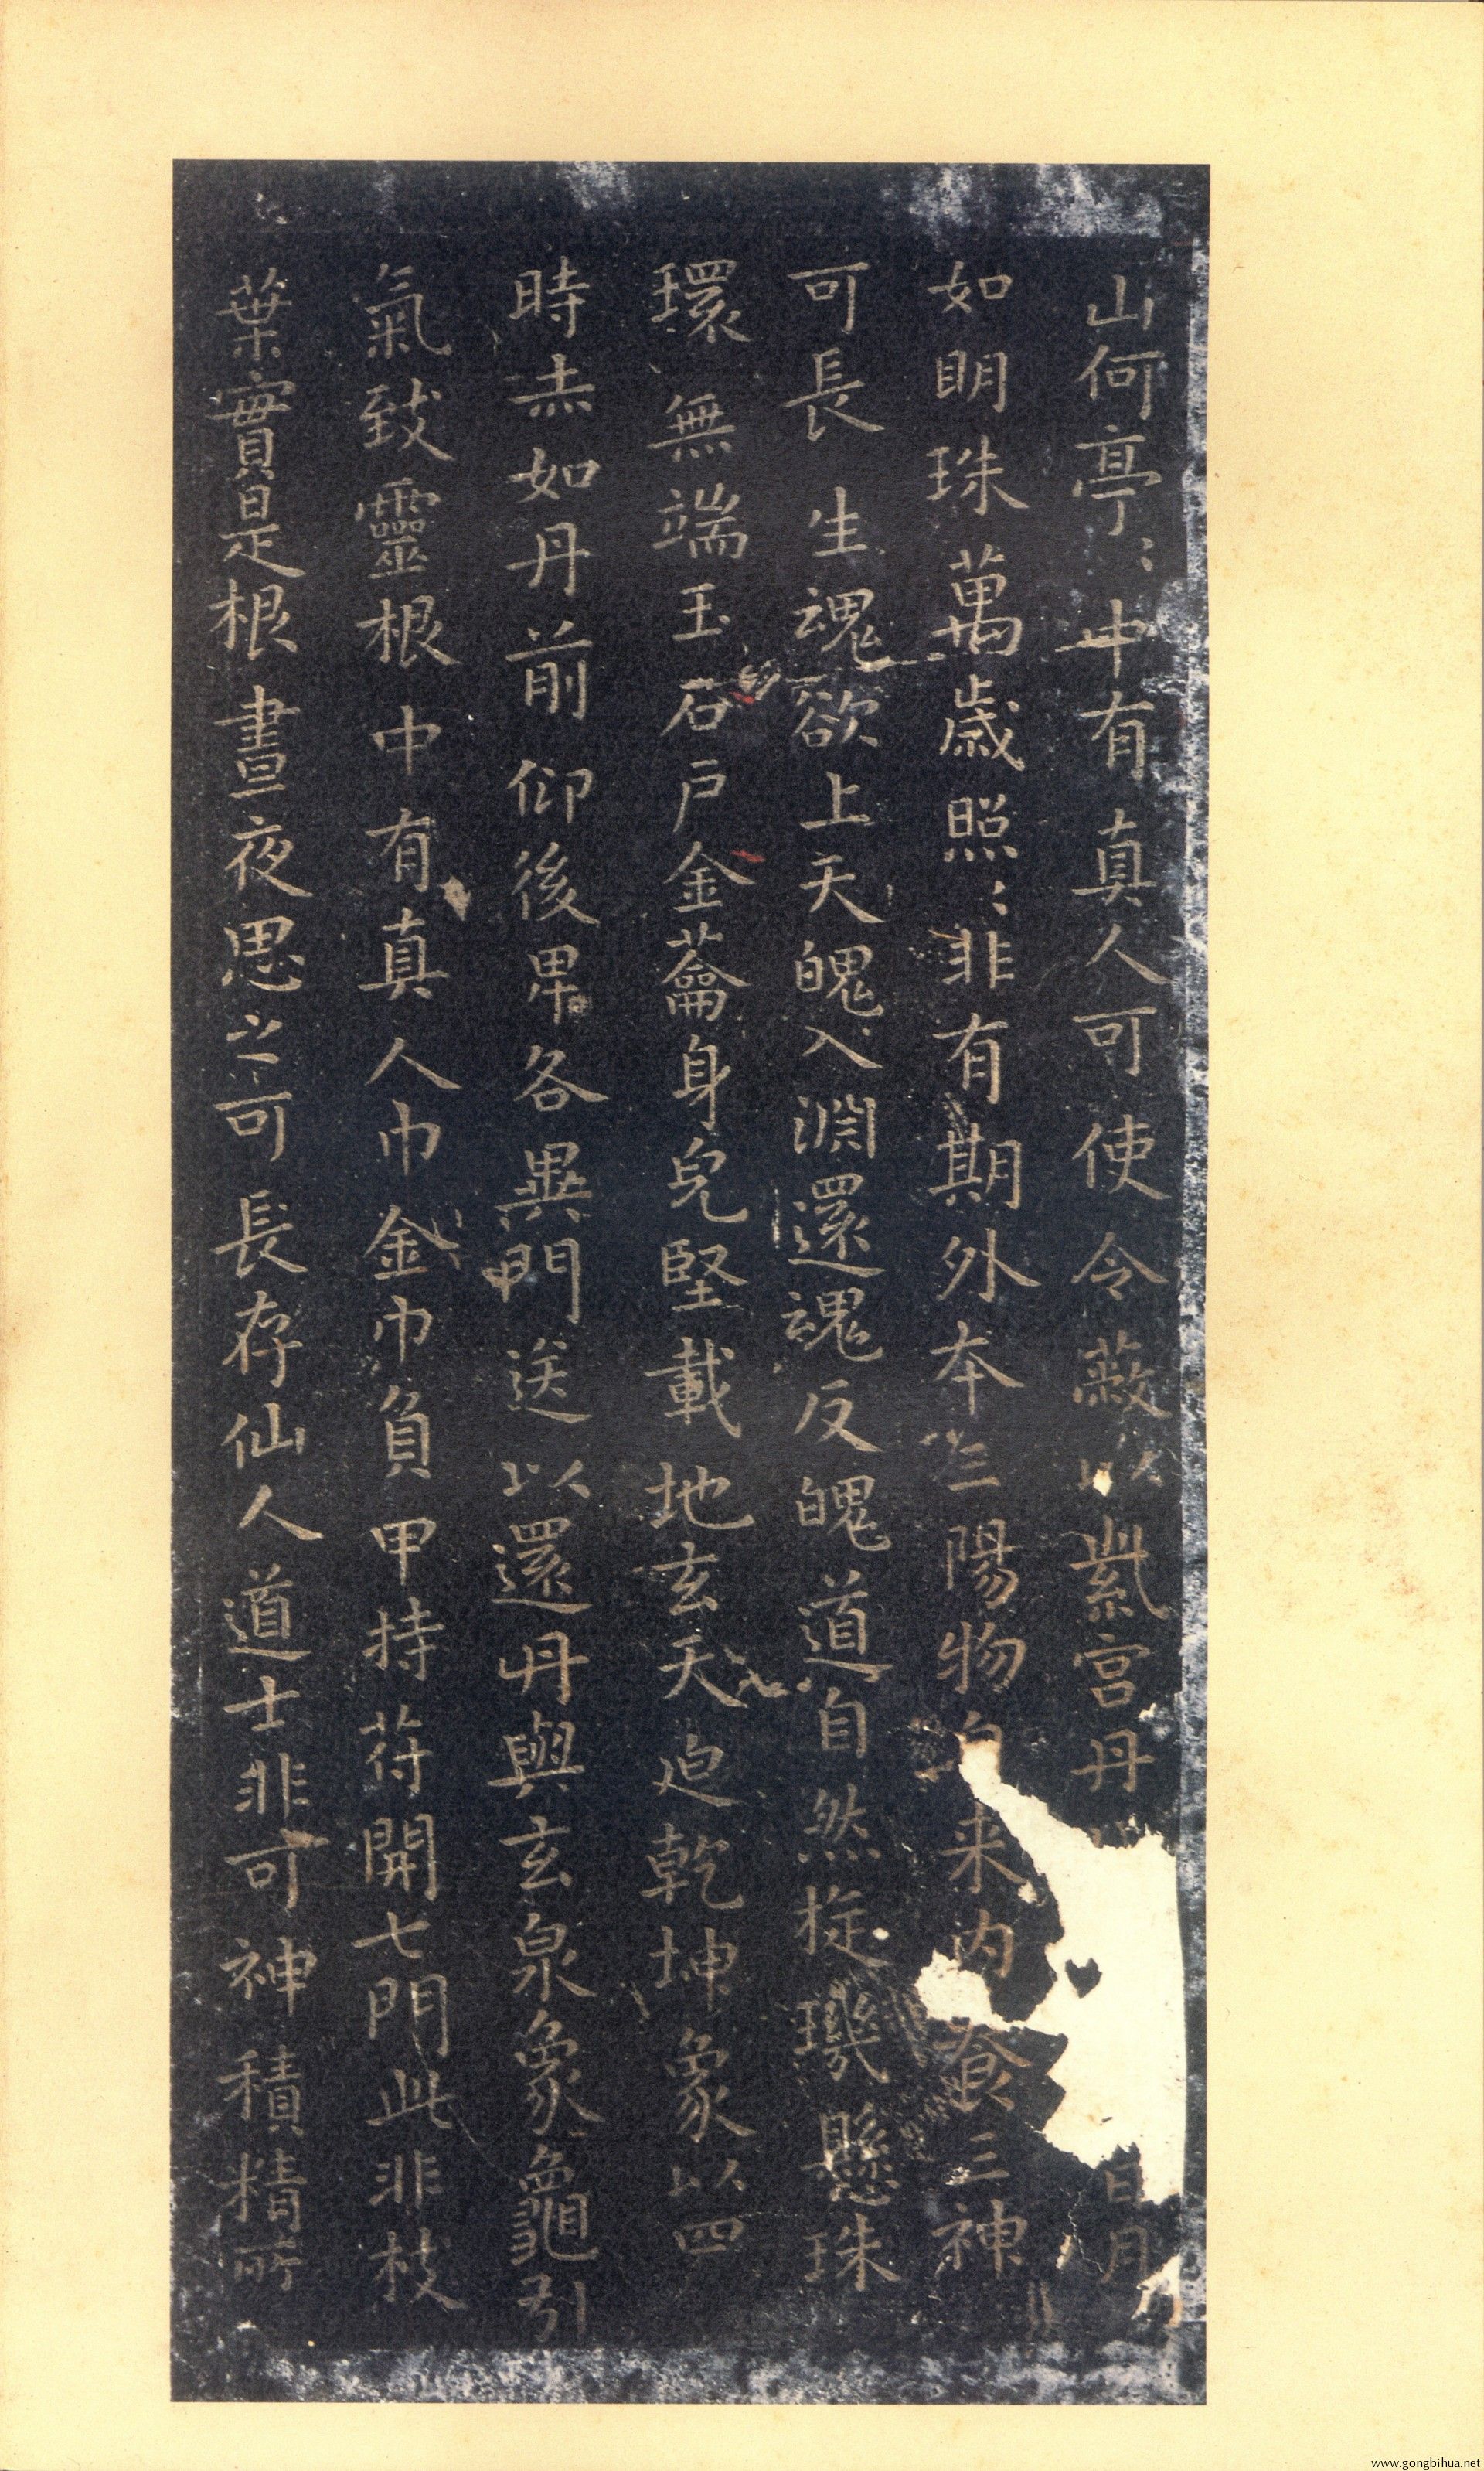 山何亭〻中有真人可使令蔽以紫宮丹日月
如明珠萬歲照〻非有期外本三陽物自来内養三神
可長生魂欲上天魄入淵還魂反魄道自然㨁璣懸珠
環無端玉石戶金籥身皃堅載地玄天迫乾坤象以四
時赤如丹前仰後卑各異門送以還丹與玄泉象龜引
氣致靈根中有真人巾金巾負甲持苻開七門此非枝
葉實是根晝夜思之可長存仙人道士非可神積精所
www.gongbihua.net